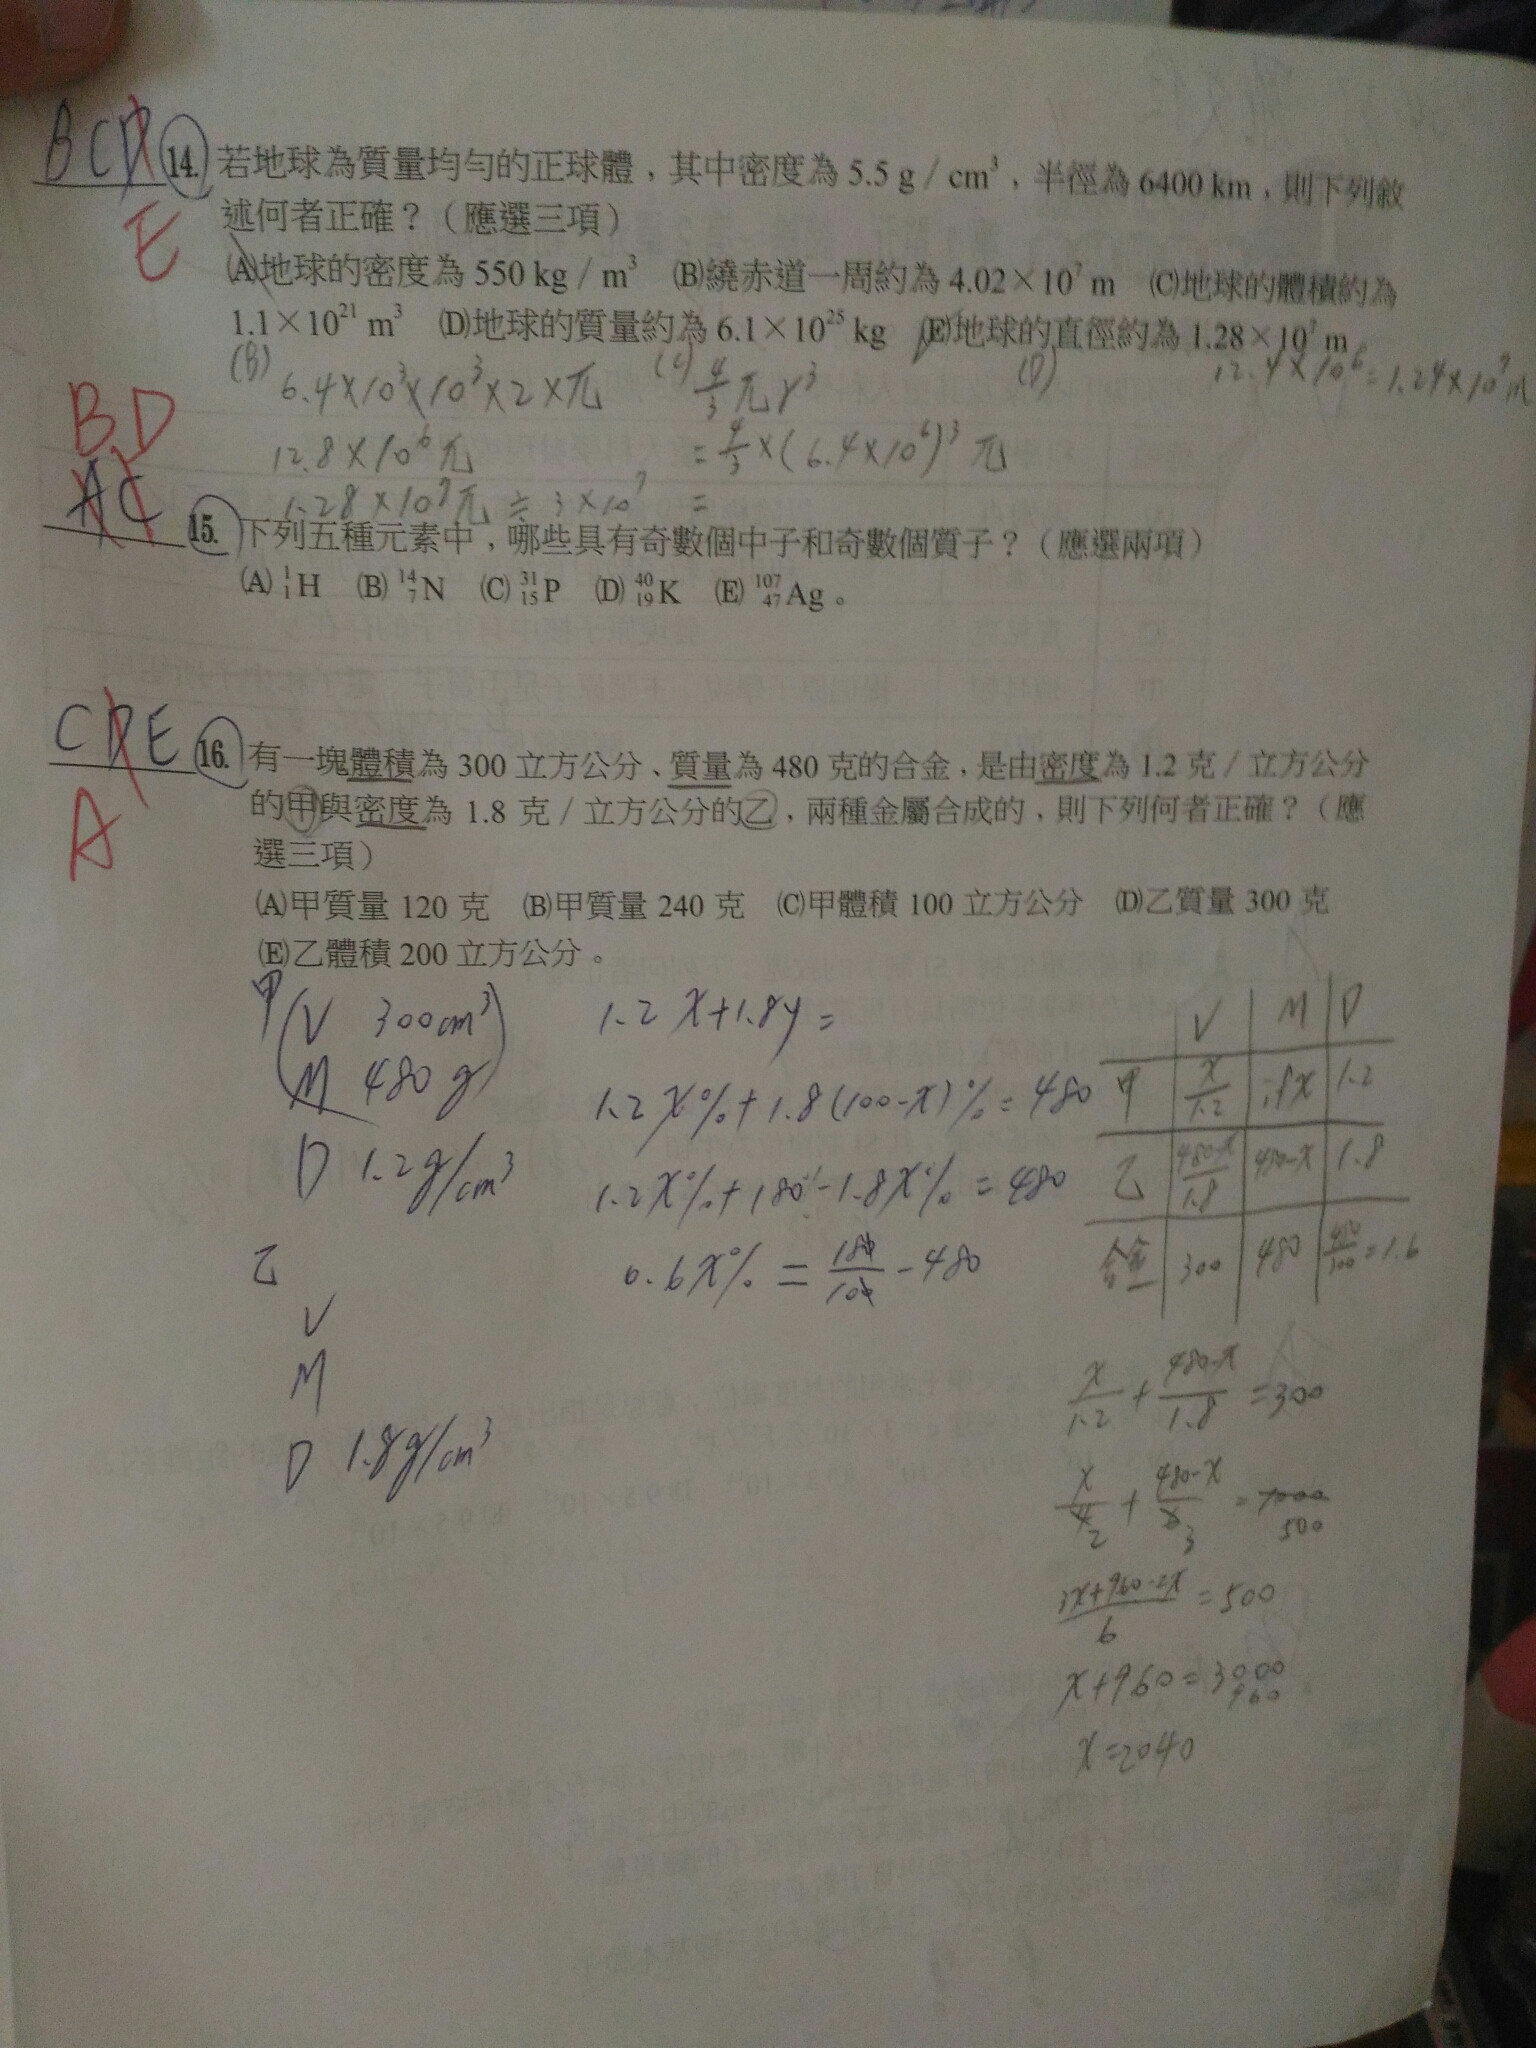 BCD 14. 若地球為質量均勻的正球體，其中密度為 5.5 g / cm³，半徑為 6400 km，則下列敘
E 述何者正確？（應選三項）
(A)地球的密度為 550 kg / m³ (B)繞赤道一周約為 4.02×10⁷ m (C)地球的體積約為
1.1×10²¹ m³ (D)地球的質量約為 6.1×10²⁵ kg (E)地球的直徑約為 1.28×10⁷ m
(B) 6.4×10³×10³×2×元 (C) 4/3 元 r³ (D) 12.4×10⁶=1.24×10⁷m
12.8×10⁶元 = 4/3×(6.4×10⁶)³元
1.28×10⁷元 ≒ 3×10⁷ =
BD
AC 15. 下列五種元素中，哪些具有奇數個中子和奇數個質子？（應選兩項）
(A) ¹₁H (B) ¹⁴₇N (C) ³¹₁₅P (D) ⁴⁰₁₉K (E) ¹⁰⁷₄₇Ag。
CDE 16. 有一塊體積為 300 立方公分、質量為 480 克的合金，是由密度為 1.2 克 / 立方公分
A 的甲與密度為 1.8 克 / 立方公分的乙，兩種金屬合成的，則下列何者正確？（應
選三項）
(A)甲質量 120 克 (B)甲質量 240 克 (C)甲體積 100 立方公分 (D)乙質量 300 克
(E)乙體積 200 立方公分。
甲 V 300cm³
M 480 g
D 1.2g/cm³
乙
V
M
D 1.8g/cm³
1.2x+1.8y=
1.2x%+1.8(100-x)%=480
1.2x%+180-1.8x%=480
0.6x%=180/100-480
V M D
甲 x/1.2 1.2
乙 480-x/1.8 480-x 1.8
合金 300 480 480/300=1.6
x/1.2+480-x/1.8=300
x/2+480-x/3=500
3x+960-2x/6=500
x+960=3000
960
x=2040